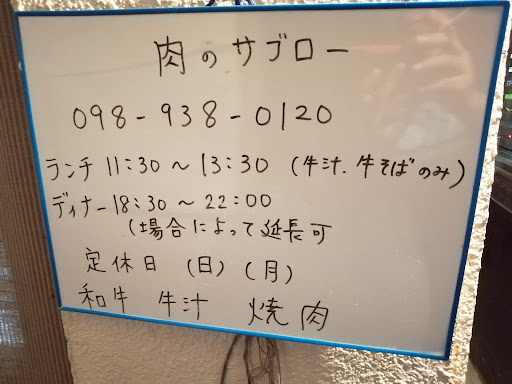 肉のサブロー
098-938-0120
ランチ 11:30～13:30 (牛汁.牛そばのみ)
ディナー18:30～22:00
(場合によって延長可
定休日 (日)(月)
和牛 牛汁 焼肉